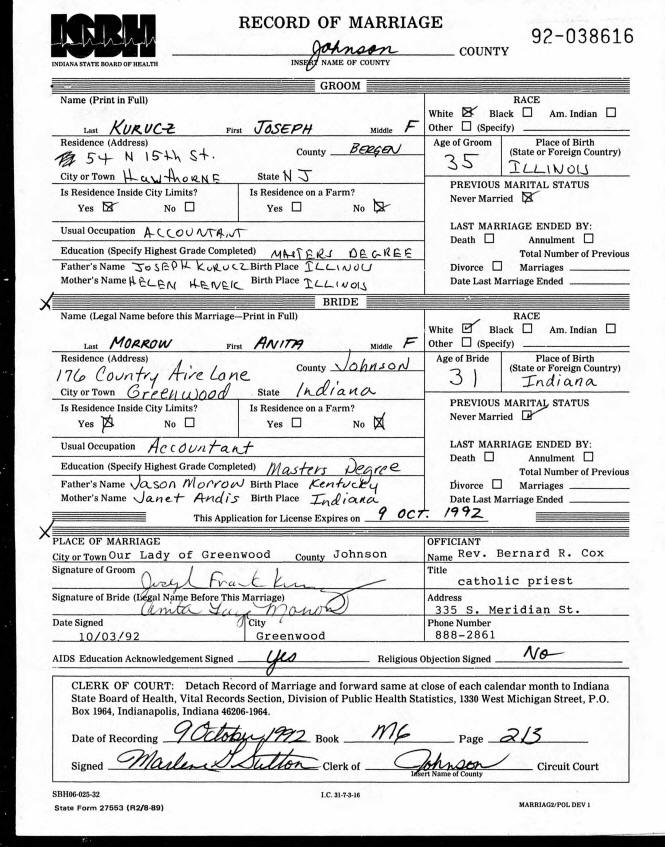 ISBH
INDIANA STATE BOARD OF HEALTH
RECORD OF MARRIAGE
Johnson COUNTY
INSERT NAME OF COUNTY
92-038616
GROOM
Name (Print in Full)
Last KURUCZ First JOSEPH Middle F
RACE
White ☒ Black ☐ Am. Indian ☐
Other ☐ (Specify)
Residence (Address) County BERGEN
54 N 15th St.
City or Town HAWTHORNE State NJ
Age of Groom 35
Place of Birth
(State or Foreign Country)
ILLINOIS
Is Residence Inside City Limits?
Yes ☒ No ☐
Is Residence on a Farm?
Yes ☐ No ☒
PREVIOUS MARITAL STATUS
Never Married ☒
Usual Occupation ACCOUNTANT
Education (Specify Highest Grade Completed) MASTERS DEGREE
Father's Name JOSEPH KURUCZ Birth Place ILLINOIS
Mother's Name HELEN Birth Place ILLINOIS
LAST MARRIAGE ENDED BY:
Death ☐ Annulment ☐
Total Number of Previous
Divorce ☐ Marriages
Date Last Marriage Ended
X
BRIDE
Name (Legal Name before this Marriage—Print in Full)
Last MORROW First ANITA Middle F
RACE
White ☑ Black ☐ Am. Indian ☐
Other ☐ (Specify)
Residence (Address) County Johnson
176 Country Aire Lane
City or Town Greenwood State Indiana
Age of Bride 31
Place of Birth
(State or Foreign Country)
Indiana
Is Residence Inside City Limits?
Yes ☒ No ☐
Is Residence on a Farm?
Yes ☐ No ☒
PREVIOUS MARITAL STATUS
Never Married ☑
Usual Occupation Accountant
Education (Specify Highest Grade Completed) Masters Degree
Father's Name Jason Morrow Birth Place Kentucky
Mother's Name Janet Andis Birth Place Indiana
LAST MARRIAGE ENDED BY:
Death ☐ Annulment ☐
Total Number of Previous
Divorce ☐ Marriages
Date Last Marriage Ended
This Application for License Expires on 9 OCT. 1992
X
PLACE OF MARRIAGE
City or Town Our Lady of Greenwood County Johnson
OFFICIANT
Name Rev. Bernard R. Cox
Signature of Groom
Joseph Frank
Title
catholic priest
Signature of Bride (Legal Name Before This Marriage)
Anita Faye Morrow
Address
335 S. Meridian St.
Date Signed
10/03/92
City
Greenwood
Phone Number
888-2861
AIDS Education Acknowledgement Signed yes Religious Objection Signed No
CLERK OF COURT: Detach Record of Marriage and forward same at close of each calendar month to Indiana
State Board of Health, Vital Records Section, Division of Public Health Statistics, 1330 West Michigan Street, P.O.
Box 1964, Indianapolis, Indiana 46206-1964.
Date of Recording 9 October, 1992 Book M6 Page 213
Signed Marlene S. Sutton Clerk of Johnson Circuit Court
Insert Name of County
SBH06-025-32
State Form 27553 (R2/8-89)
I.C. 31-7-3-16
MARRIAG2/POL DEV 1